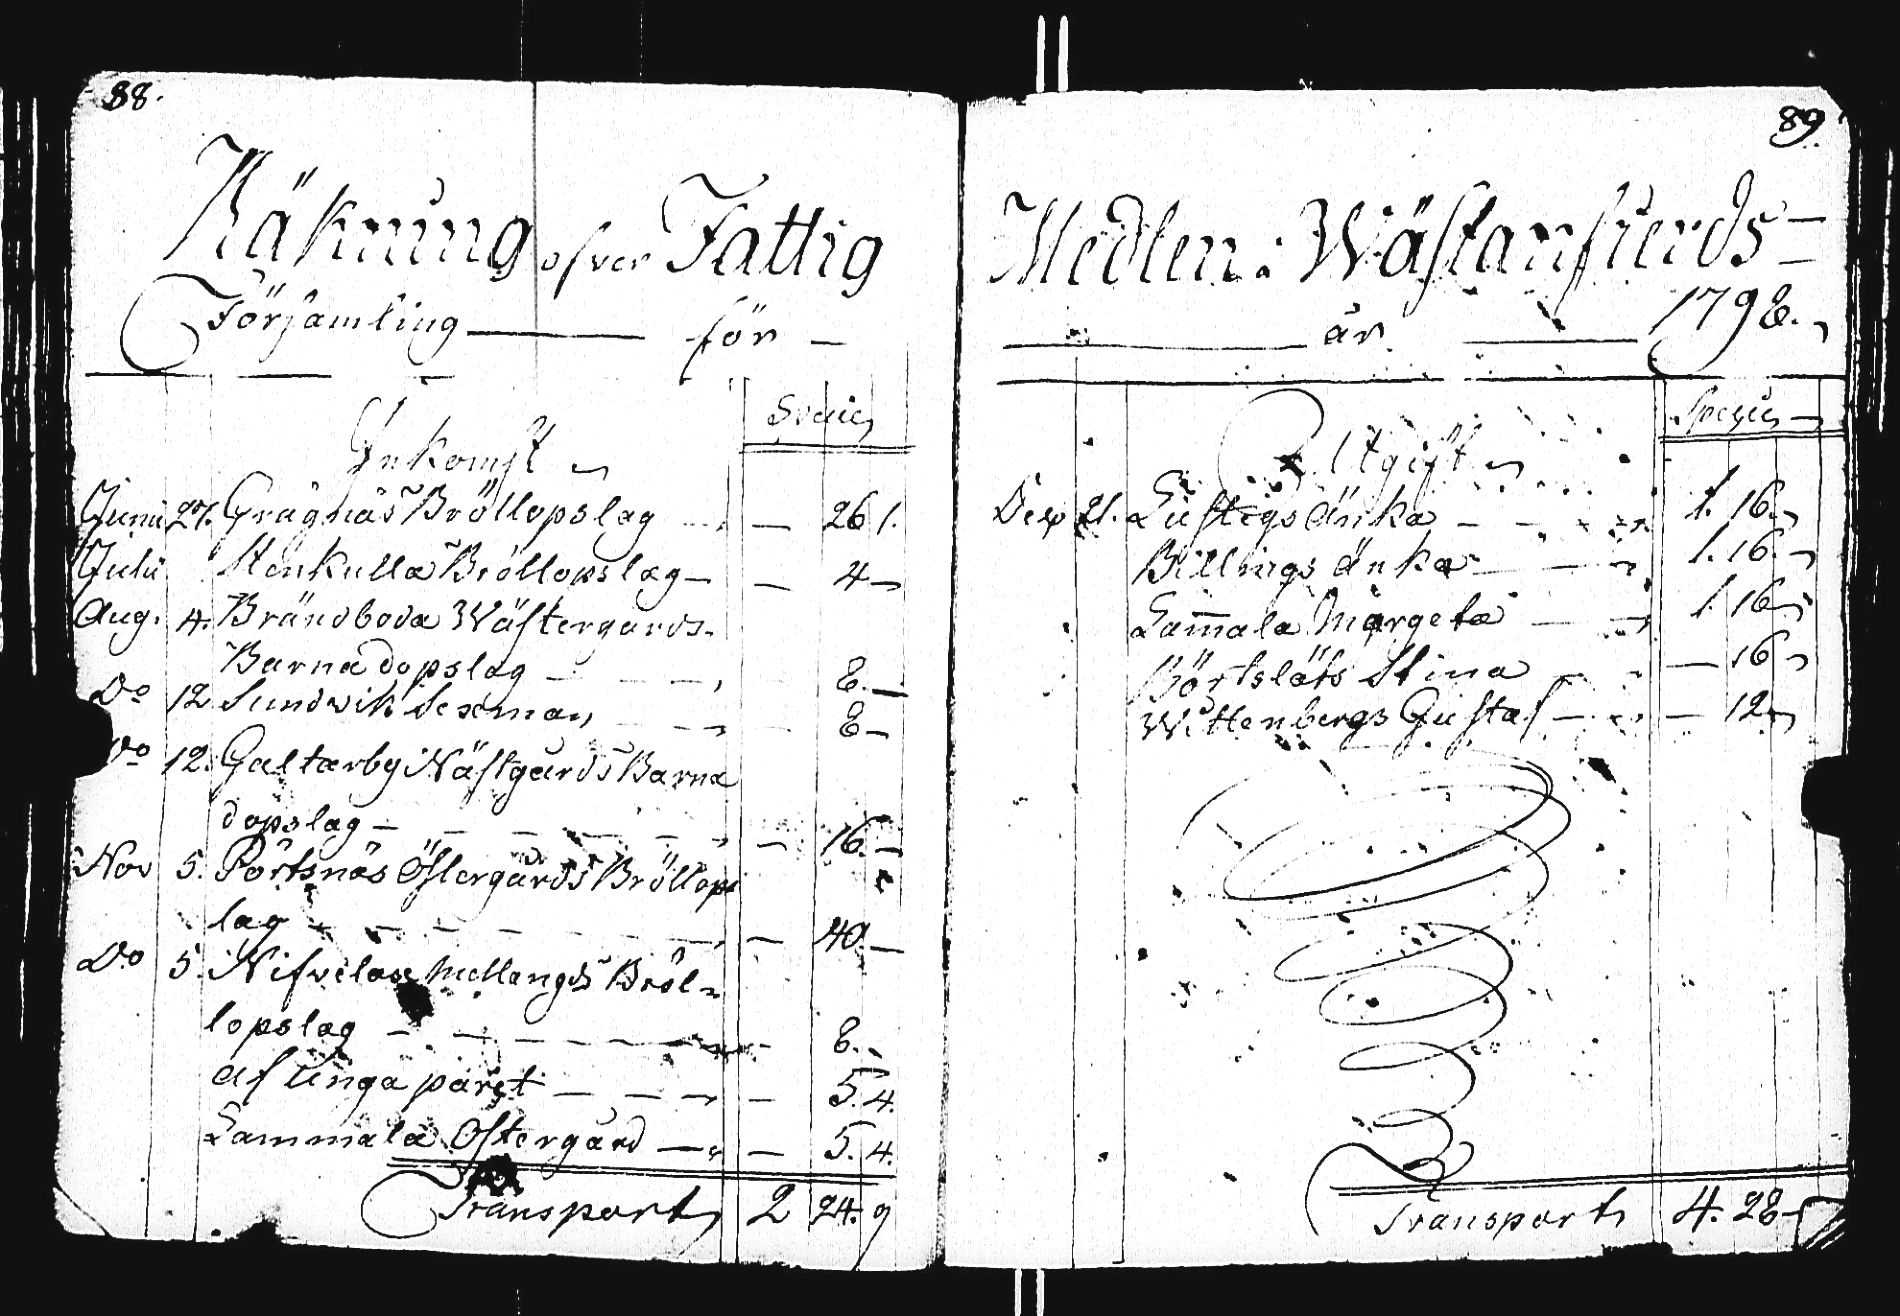 88.
Räkning öfver Fattig
Församling — för —
Inkomst
Juni 27. Grågnäs Bröllopslag — 26 1.
Julii Stenkulla Bröllopslag — 4 —
Aug. 4. Brändboda Wästergårds
Barnadopslag — 8. —
Do 12 Sundvik — 8 —
Do 12. Galtarby Nästgårds Barna
dopslag — — 16. —
Nov 5. Pörtsnäs Östergårds Bröllops
lag — — 40. —
Do 5. Nifvelax Mellangds Bröl-
lopslag — — 8. —
af unga paret — — 5. 4.
Lammala Östergård — — 5. 4.
Transport 2 24. 9
89.
Medlen: Wästanfierds
år 1798.
Utgift
Dec 21. Lustigs änka — 1. 16. —
Billings änka — 1. 16. —
Lam̅ala Margeta — 1. 16 —
Börtsläts Stina — 16 —
Wittenbergs Gustaf — — 12 —
Transport 4. 28 —